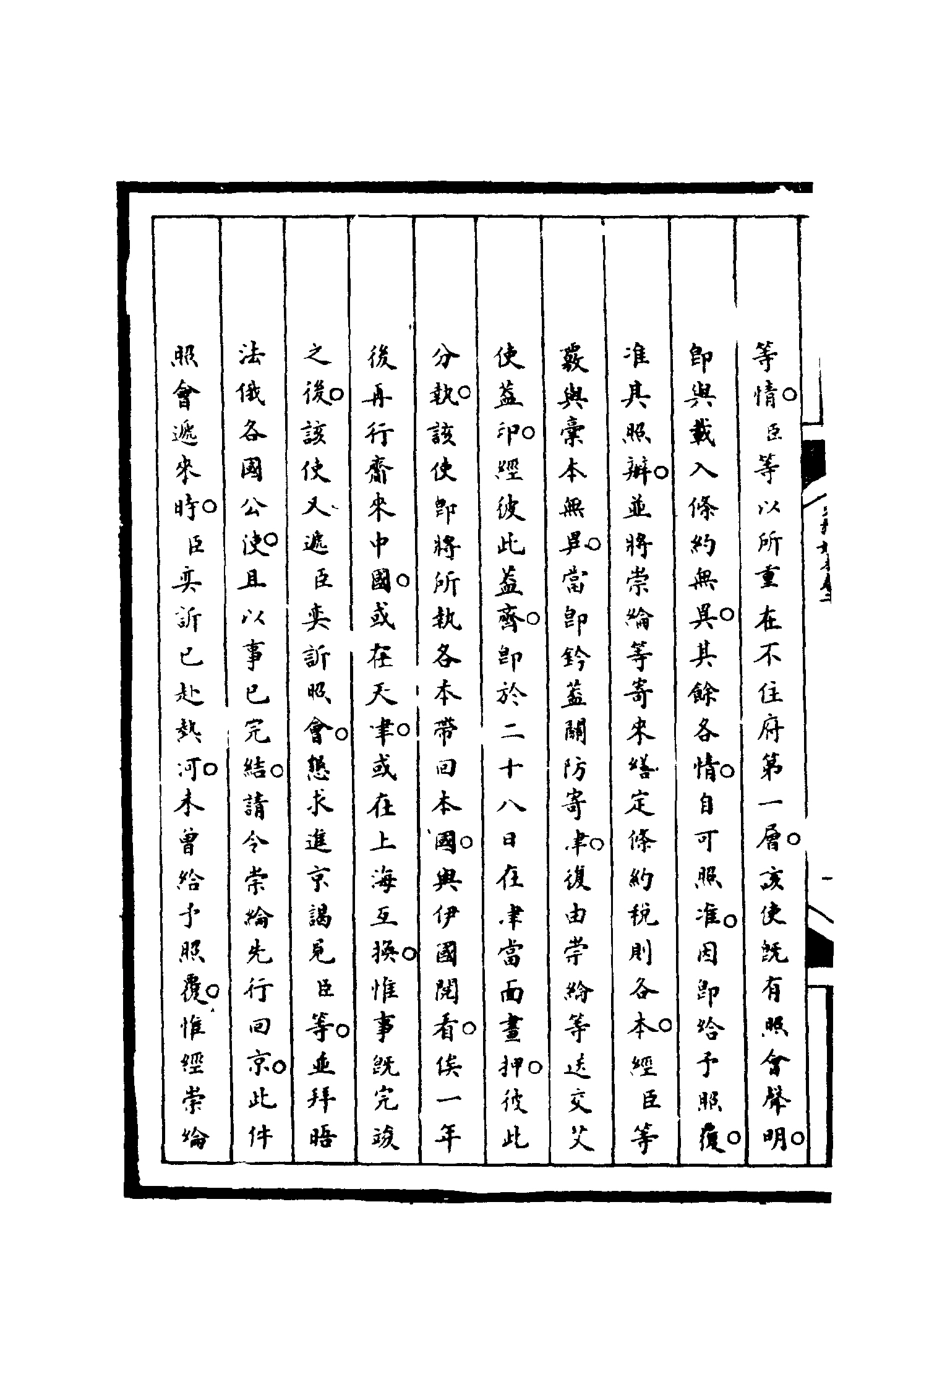 等情。臣等以所重在不住府第一層。該使既有照會聲明。
即與載入條約無異。其餘各情。自可照准。因即給予照覆。
准其照辦。並將崇綸等寄來繕定條約稅則各本。經臣等
覈與稾本無異。當即鈐蓋關防寄津。復由崇綸等送交艾
使蓋印。經彼此蓋齊。即於二十八日在津當面畫押。彼此
分執。該使即將所執各本帶回本國。與伊國閱看。俟一年
後再行齎來中國。或在天津。或在上海互換。惟事既完竣
之後。該使又遞臣奕訢照會。懇求進京謁見臣等。並拜晤
法俄各國公使。且以事已完結。請令崇綸先行回京。此件
照會遞來時。臣奕訢已赴熱河。未曾給予照覆。惟經崇綸